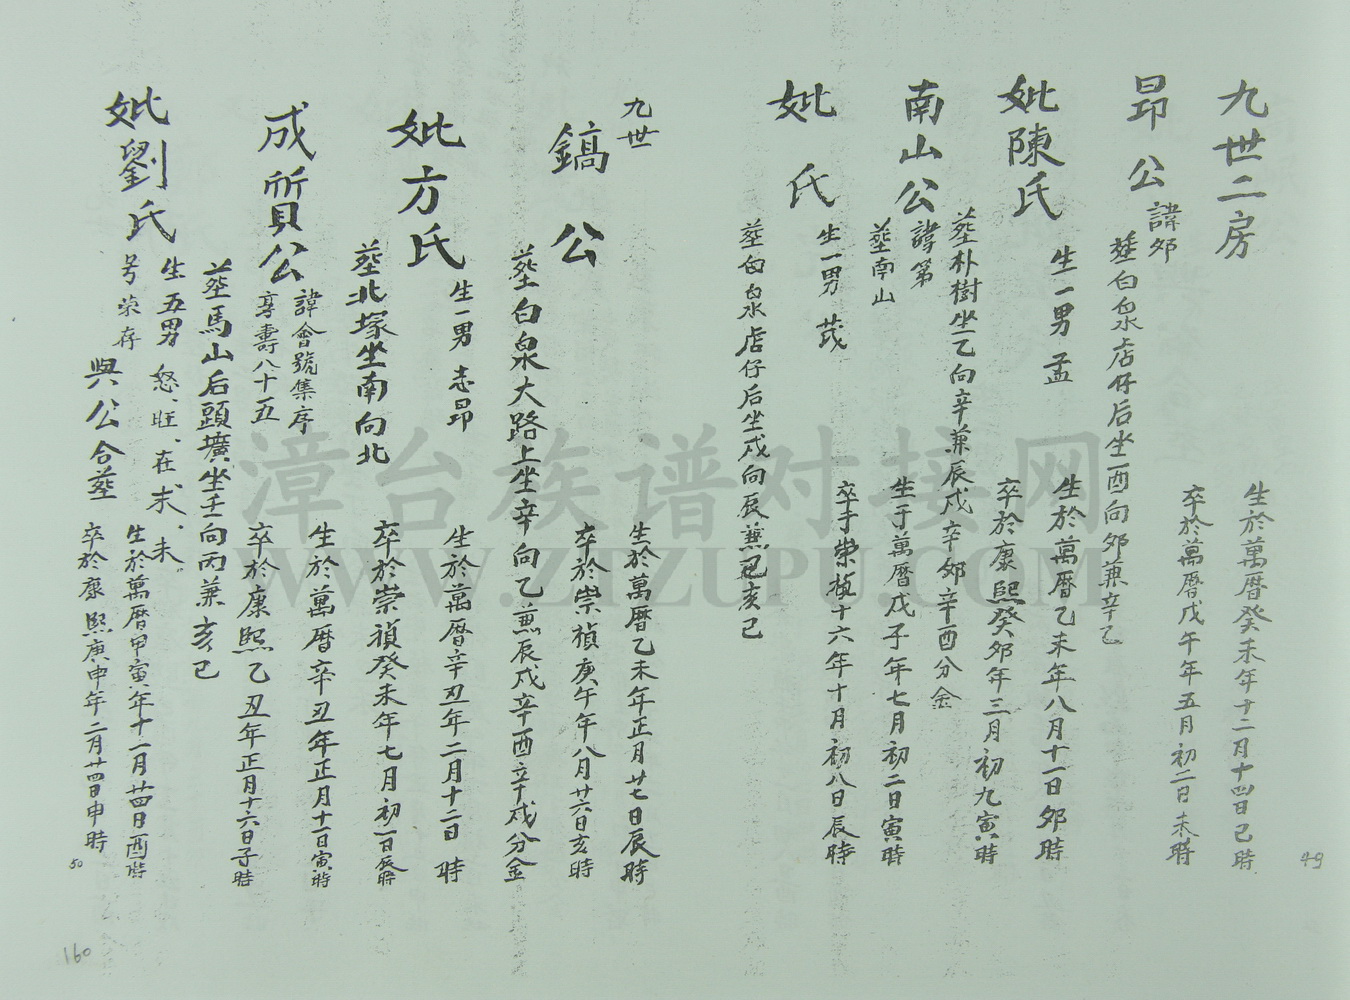 九世二房
昂公 諱卯
生於萬曆癸未年十二月十四日巳時
卒於萬曆戊午年五月初二日未時
塟白泉店仔后坐酉向卯兼辛乙
妣陳氏
生一男 孟
生於萬曆乙未年八月十一日卯時
卒於康熙癸卯年三月初九寅時
塟朴樹坐乙向辛兼辰戌辛卯辛酉分金
南山公
諱第
塟南山
生于萬曆戊子年七月初二日寅時
卒于崇禎十六年十月初八日辰時
妣 氏
生一男 茂
塟白泉店仔后坐戌向辰兼己亥巳
九世
鎬公
生於萬曆乙未年正月廿七日辰時
卒於崇禎庚午年八月廿六日亥時
塟白泉大路上坐辛向乙兼辰戌辛酉辛戌分金
妣方氏
生一男 志昂
生於萬曆辛丑年二月十二日 時
卒於崇禎癸未年七月初一日辰時
塟北塚坐南向北
成質公
諱會號集序
享壽八十五
生於萬曆辛丑年正月十一日寅時
卒於康熙乙丑年正月十六日子時
塟馬山后頭壙坐壬向丙兼亥巳
妣劉氏
生五男 怒、旺、在、求、未。
号荣存
與公合塟
生於萬曆甲寅年十一月廿四日酉時
卒於康熙庚申年二月廿四日申時
49
50
160
漳台族谱对接网
WWW.ZTZUPU.COM